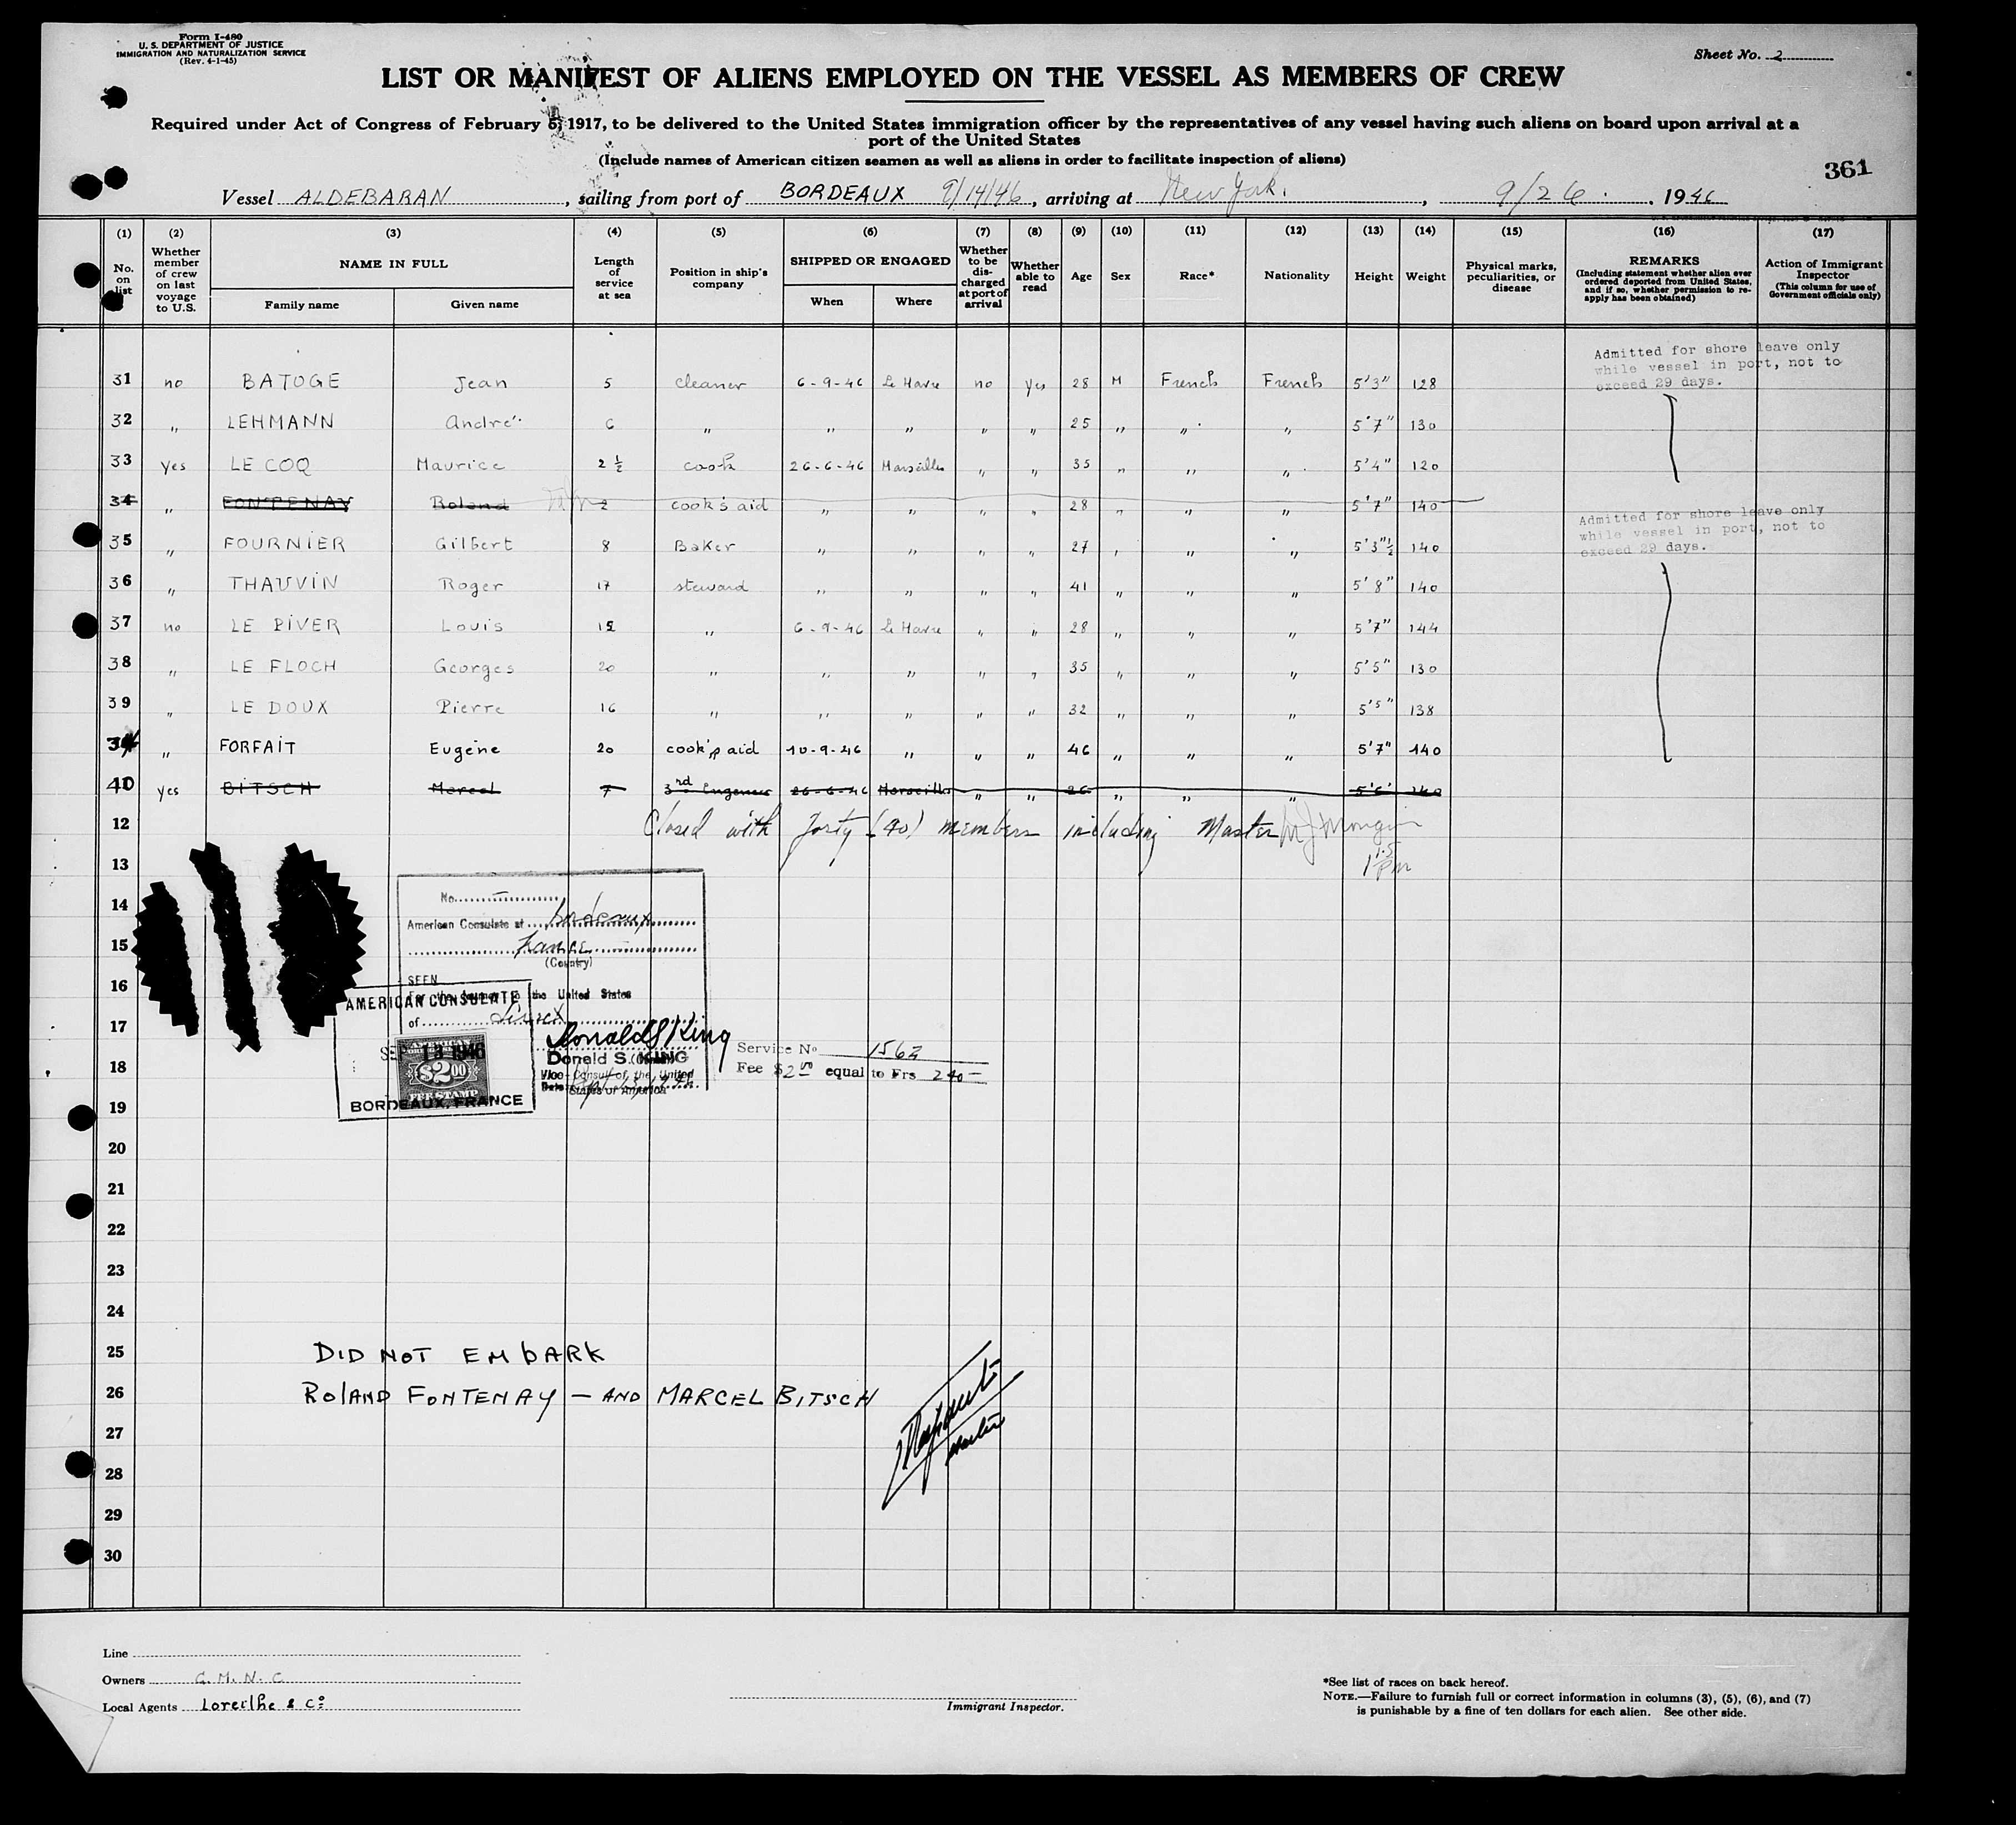 Form I-480
U. S. DEPARTMENT OF JUSTICE
IMMIGRATION AND NATURALIZATION SERVICE
(Rev. 4-1-45)
Sheet No. 2
LIST OR MANIFEST OF ALIENS EMPLOYED ON THE VESSEL AS MEMBERS OF CREW
Required under Act of Congress of February 5, 1917, to be delivered to the United States immigration officer by the representatives of any vessel having such aliens on board upon arrival at a
port of the United States
(Include names of American citizen seamen as well as aliens in order to facilitate inspection of aliens)
361
Vessel ALDEBARAN, sailing from port of BORDEAUX 9/14/46, arriving at New York, 9/26, 1946
(1) (2) (3) (4) (5) (6) (7) (8) (9) (10) (11) (12) (13) (14) (15) (16) (17)
No. on list
Whether member of crew on last voyage to U.S.
NAME IN FULL
Family name
Given name
Length of service at sea
Position in ship's company
SHIPPED OR ENGAGED
When
Where
Whether to be discharged at port of arrival
Whether able to read
Age
Sex
Race*
Nationality
Height
Weight
Physical marks, peculiarities, or disease
REMARKS
(Including statement whether alien ever ordered deported from United States, and if so, whether permission to re-apply has been obtained)
Action of Immigrant Inspector
(This column for use of Government officials only)
Admitted for shore leave only
while vessel in port, not to
exceed 29 days.
31 no BATOGE Jean 5 cleaner 6-9-46 Le Havre no yes 28 M French French 5'3" 128
32 " LEHMANN André 6 " " " " " 25 " " " 5'7" 130
33 yes LE COQ Maurice 2 ½ cook 26-6-46 Marseilles " " 35 " " " 5'4" 120
34 " FONTENAY Roland 2 cook's aid " " " " 28 " " " 5'7" 140
Admitted for shore leave only
while vessel in port, not to
exceed 29 days.
35 " FOURNIER Gilbert 8 Baker " " " " 27 " " " 5'3"½ 140
36 " THAUVIN Roger 17 steward " " " " 41 " " " 5'8" 140
37 no LE PIVER Louis 15 " 6-9-46 Le Havre " " 28 " " " 5'7" 144
38 " LE FLOCH Georges 20 " " " " " 35 " " " 5'5" 130
39 " LE DOUX Pierre 16 " " " " " 32 " " " 5'5" 138
34 " FORFAIT Eugène 20 cook's aid 10-9-46 " " " 46 " " " 5'7" 140
40 yes BITSCH Marcel 7 3rd Engeneer 26-6-46 Marseille " " 26 " " " 5'6" 140
12 Closed with forty (40) members including Master
13
14
15
16
17
18
19
20
21
22
23
24
25
26
27
28
29
30
No.
American Consulate at Bordeaux
France
(Country)
SEEN
For the journey to the United States
of
Donald S King
Donald S. KING
Vice-Consul of the United
States of America
Date Sept. 13, 1946
AMERICAN CONSULATE
SEP 13 1946
$2.00
FEE STAMP
BORDEAUX, FRANCE
Service No 1562
Fee $2.00 equal to Frs 240
DID NOT EMBARK
ROLAND FONTENAY — AND MARCEL BITSCH
Master
Line
Owners C.M.N.C
Local Agents Loreilhe & Co
Immigrant Inspector.
*See list of races on back hereof.
NOTE.—Failure to furnish full or correct information in columns (3), (5), (6), and (7)
is punishable by a fine of ten dollars for each alien. See other side.